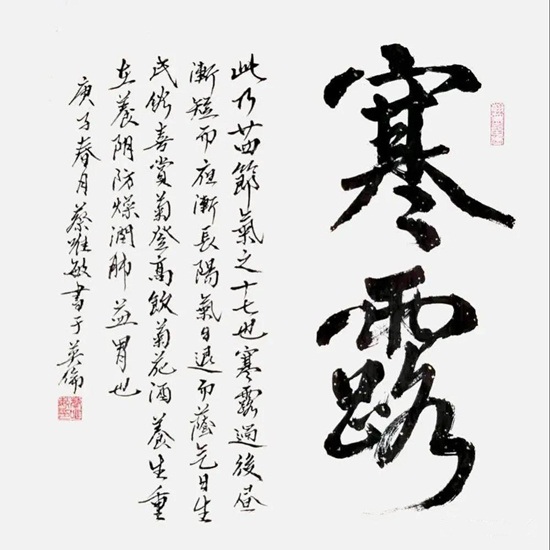 寒露
此乃廿四節氣之十七也寒露過後昼
漸短而夜漸長陽氣日退而蔭气日生
民俗喜賞菊登高飲菊花酒養生重
在養阴防燥潤肺益胃也
庚子春月蔡唯敏書于英倫